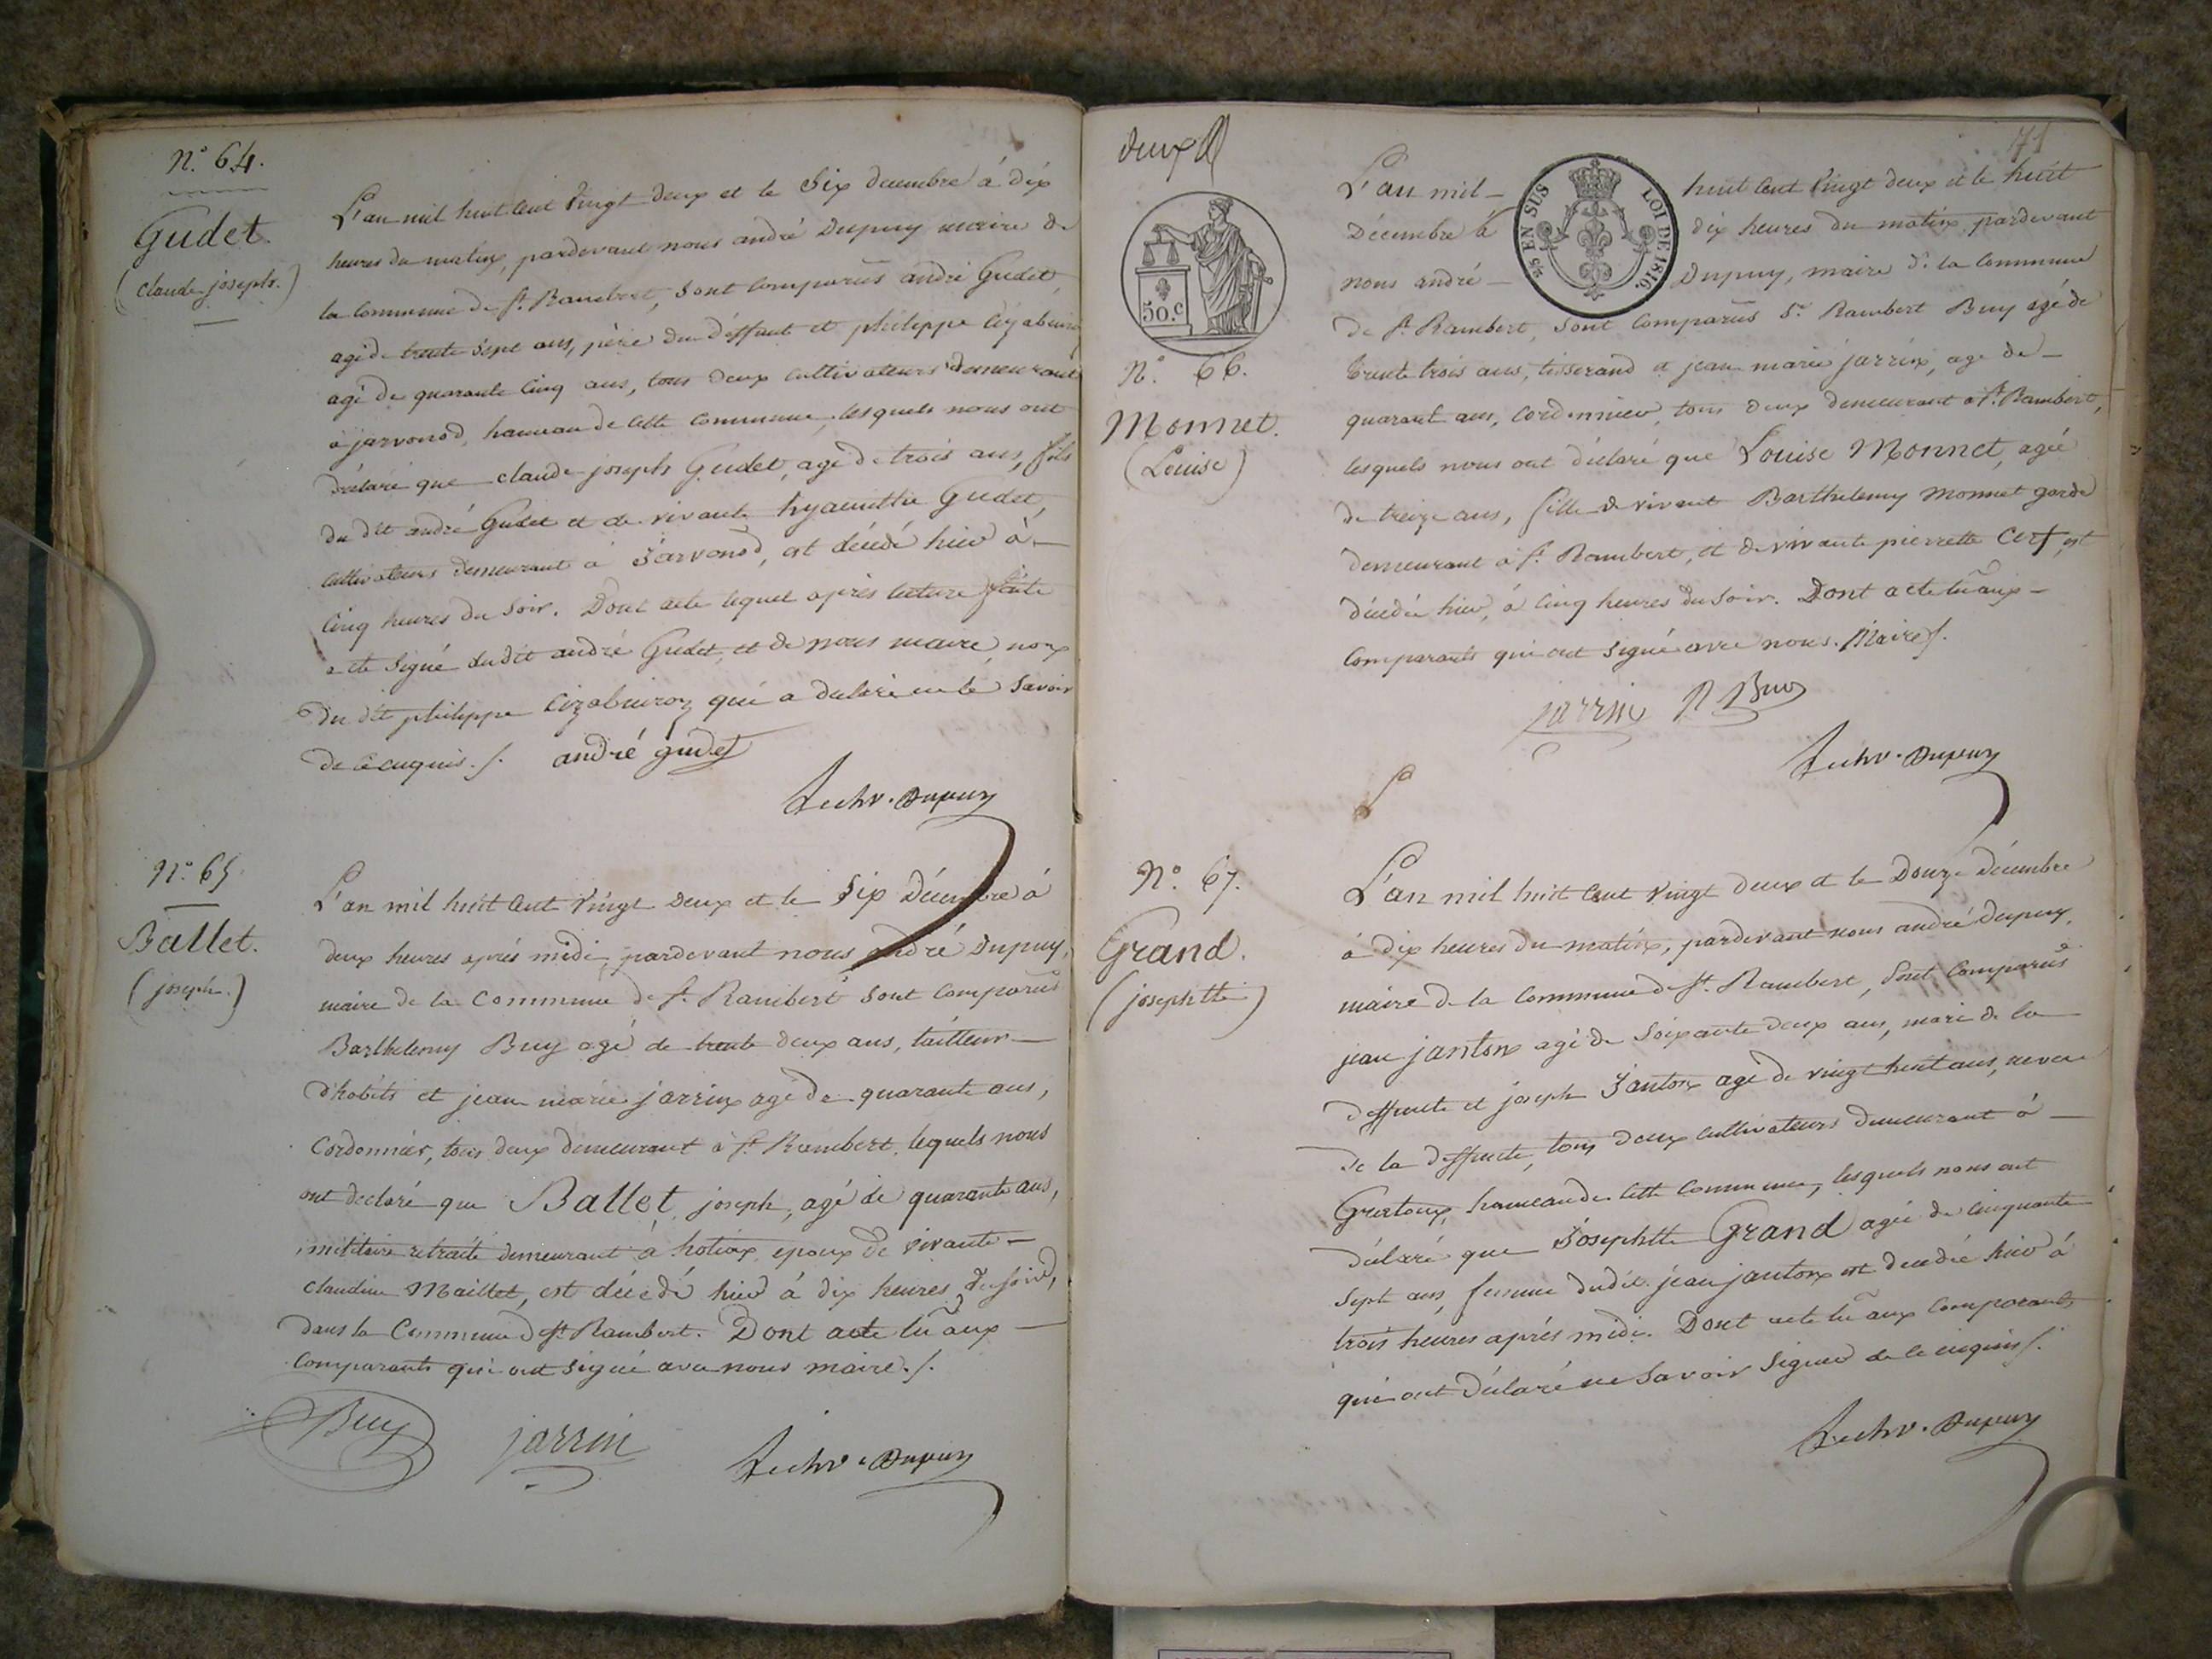 N.° 64.
Gudet
(claude joseph.)
L'an mil huit cent vingt deux et le Six décembre à dix
heures du matin, pardevant nous andré Dupuy maire de
la commune de St. Rambert, sont comparus andré Gudet,
agé de trente sept ans, père du déffunt et philippe
agé de quarante cinq ans, tous deux cultivateurs demeurant
à jarvonod, hameau de cette commune, lesquels nous ont
déclaré que claude joseph Gudet, agé de trois ans, fils
du dit andré Gudet et de vivante hyacinthe Gudet,
cultivateurs demeurant à Jarvonod, est décédé hier à
cinq heures du Soir. Dont acte lequel après lecture faite
a été Signé dudit andré Gudet, et de nous maire, non
du dit philippe qui a déclaré ne le Savoir
de ce enquis./. andré gudet
Dupuy
N.° 65
Ballet.
(joseph.)
L'an mil huit cent vingt deux et le Six Décembre à
deux heures après midi, pardevant nous andré Dupuy,
maire de la Commune de St. Rambert sont comparus
Barthelemy Buy agé de trente deux ans, tailleur
d'habits et jean marie jarrin agé de quarante ans,
Cordonnier, tous deux demeurant à St. Rambert, lequels nous
ont declaré que Ballet joseph, agé de quarante ans,
militaire retraité demeurant a époux de vivante
claudine Maillet, est décédé hier à dix heures du soir,
dans la Commune de St. Rambert. Dont acte lu aux
Comparants qui ont signé avec nous maire./.
Buy jarrin Dupuy
deux
71
50.C
25 EN SUS LOI DE 1816.
N.° 66.
Monnet.
(Louise)
L'an mil huit cent vingt deux et le huit
Décembre à dix heures du matin pardevant
nous andré Dupuy, maire de la Commune
de St. Rambert, sont comparus Sr. Rambert Buy agé de
trente trois ans, tisserand et jean marie jarrin, agé de
quarante ans, cordonnier, tous deux demeurant a St. Rambert,
lesquels nous ont déclaré que Louise Monnet, agée
de treize ans, fille de vivant Barthelemy Monnet garde
demeurant à St. Rambert, et de vivante pierrette Cerf, est
décédée hier, à cinq heures du soir. Dont acte lu aux
Comparants qui ont signé avec nous Maire/.
jarrin R Buy
Dupuy
N.° 67.
Grand.
(josephtte)
L'an mil huit cent vingt deux et le Douze Décembre
à dix heures du matin, pardevant nous andré Dupuy,
maire de la commune de St. Rambert, sont comparus
jean janton agé de Soixante deux ans, mari de la
deffunte et joseph Janton agé de vingt huit ans, neveu
de la deffunte, tous deux cultivateurs demeurant à
hameau de cette commune, lesquels nous ont
déclaré que Josephtte Grand agée de cinquante
sept ans, femme dudit jean janton est decedée hier à
trois heures après midi. Dont acte lu aux comparants
qui ont déclaré ne Savoir Signer de ce enquis/.
Dupuy